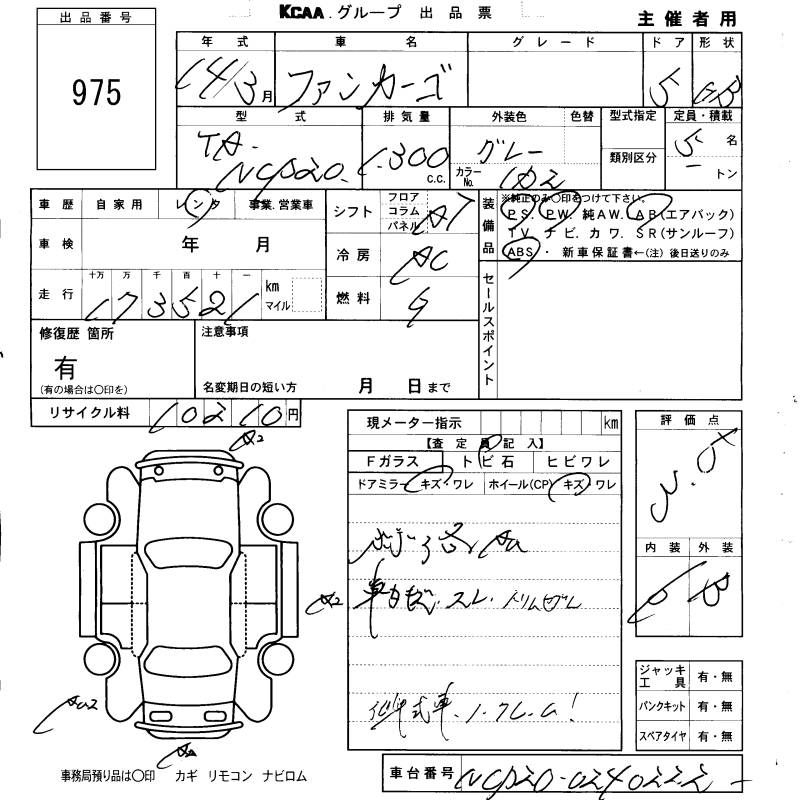 KCAA.グループ 出品票
主催者用
出品番号
975
年式 車名 グレード ドア 形状
14/3月 ファンカーゴ 5 GB
型式 排気量 外装色 色替 型式指定 定員・積載
TA-NCP20 1.300 c.c. グレー カラーNo. 1D2 類別区分 5 名
トン
車歴 自家用 レンタ 事業.営業車
車検 年 月
走行 十万 万 千 百 十 一
173521 km マイル
シフト フロア コラム パネル AT
冷房 AC
燃料 G
装備品 ※純正のみ○印をつけて下さい。
PS. PW. 純AW. AB(エアバック)
TV. ナビ. カワ. SR(サンルーフ)
ABS・ 新車保証書←(注)後日送りのみ
セールスポイント
修復歴 箇所
有
(有の場合は○印を)
注意事項
名変期日の短い方 月 日まで
リサイクル料 10210円
現メーター指示 km
【査定員記入】
Fガラス トビ石 ヒビワレ
ドアミラー キズ・ワレ ホイール(CP) キズ・ワレ
評価点
内装 外装
B
A2
A2
車内 スレ
ノークレーム!
ジャッキ工具 有・無
パンクキット 有・無
スペアタイヤ 有・無
事務局預り品は○印 カギ リモコン ナビロム
車台番号 NCP20-0240222